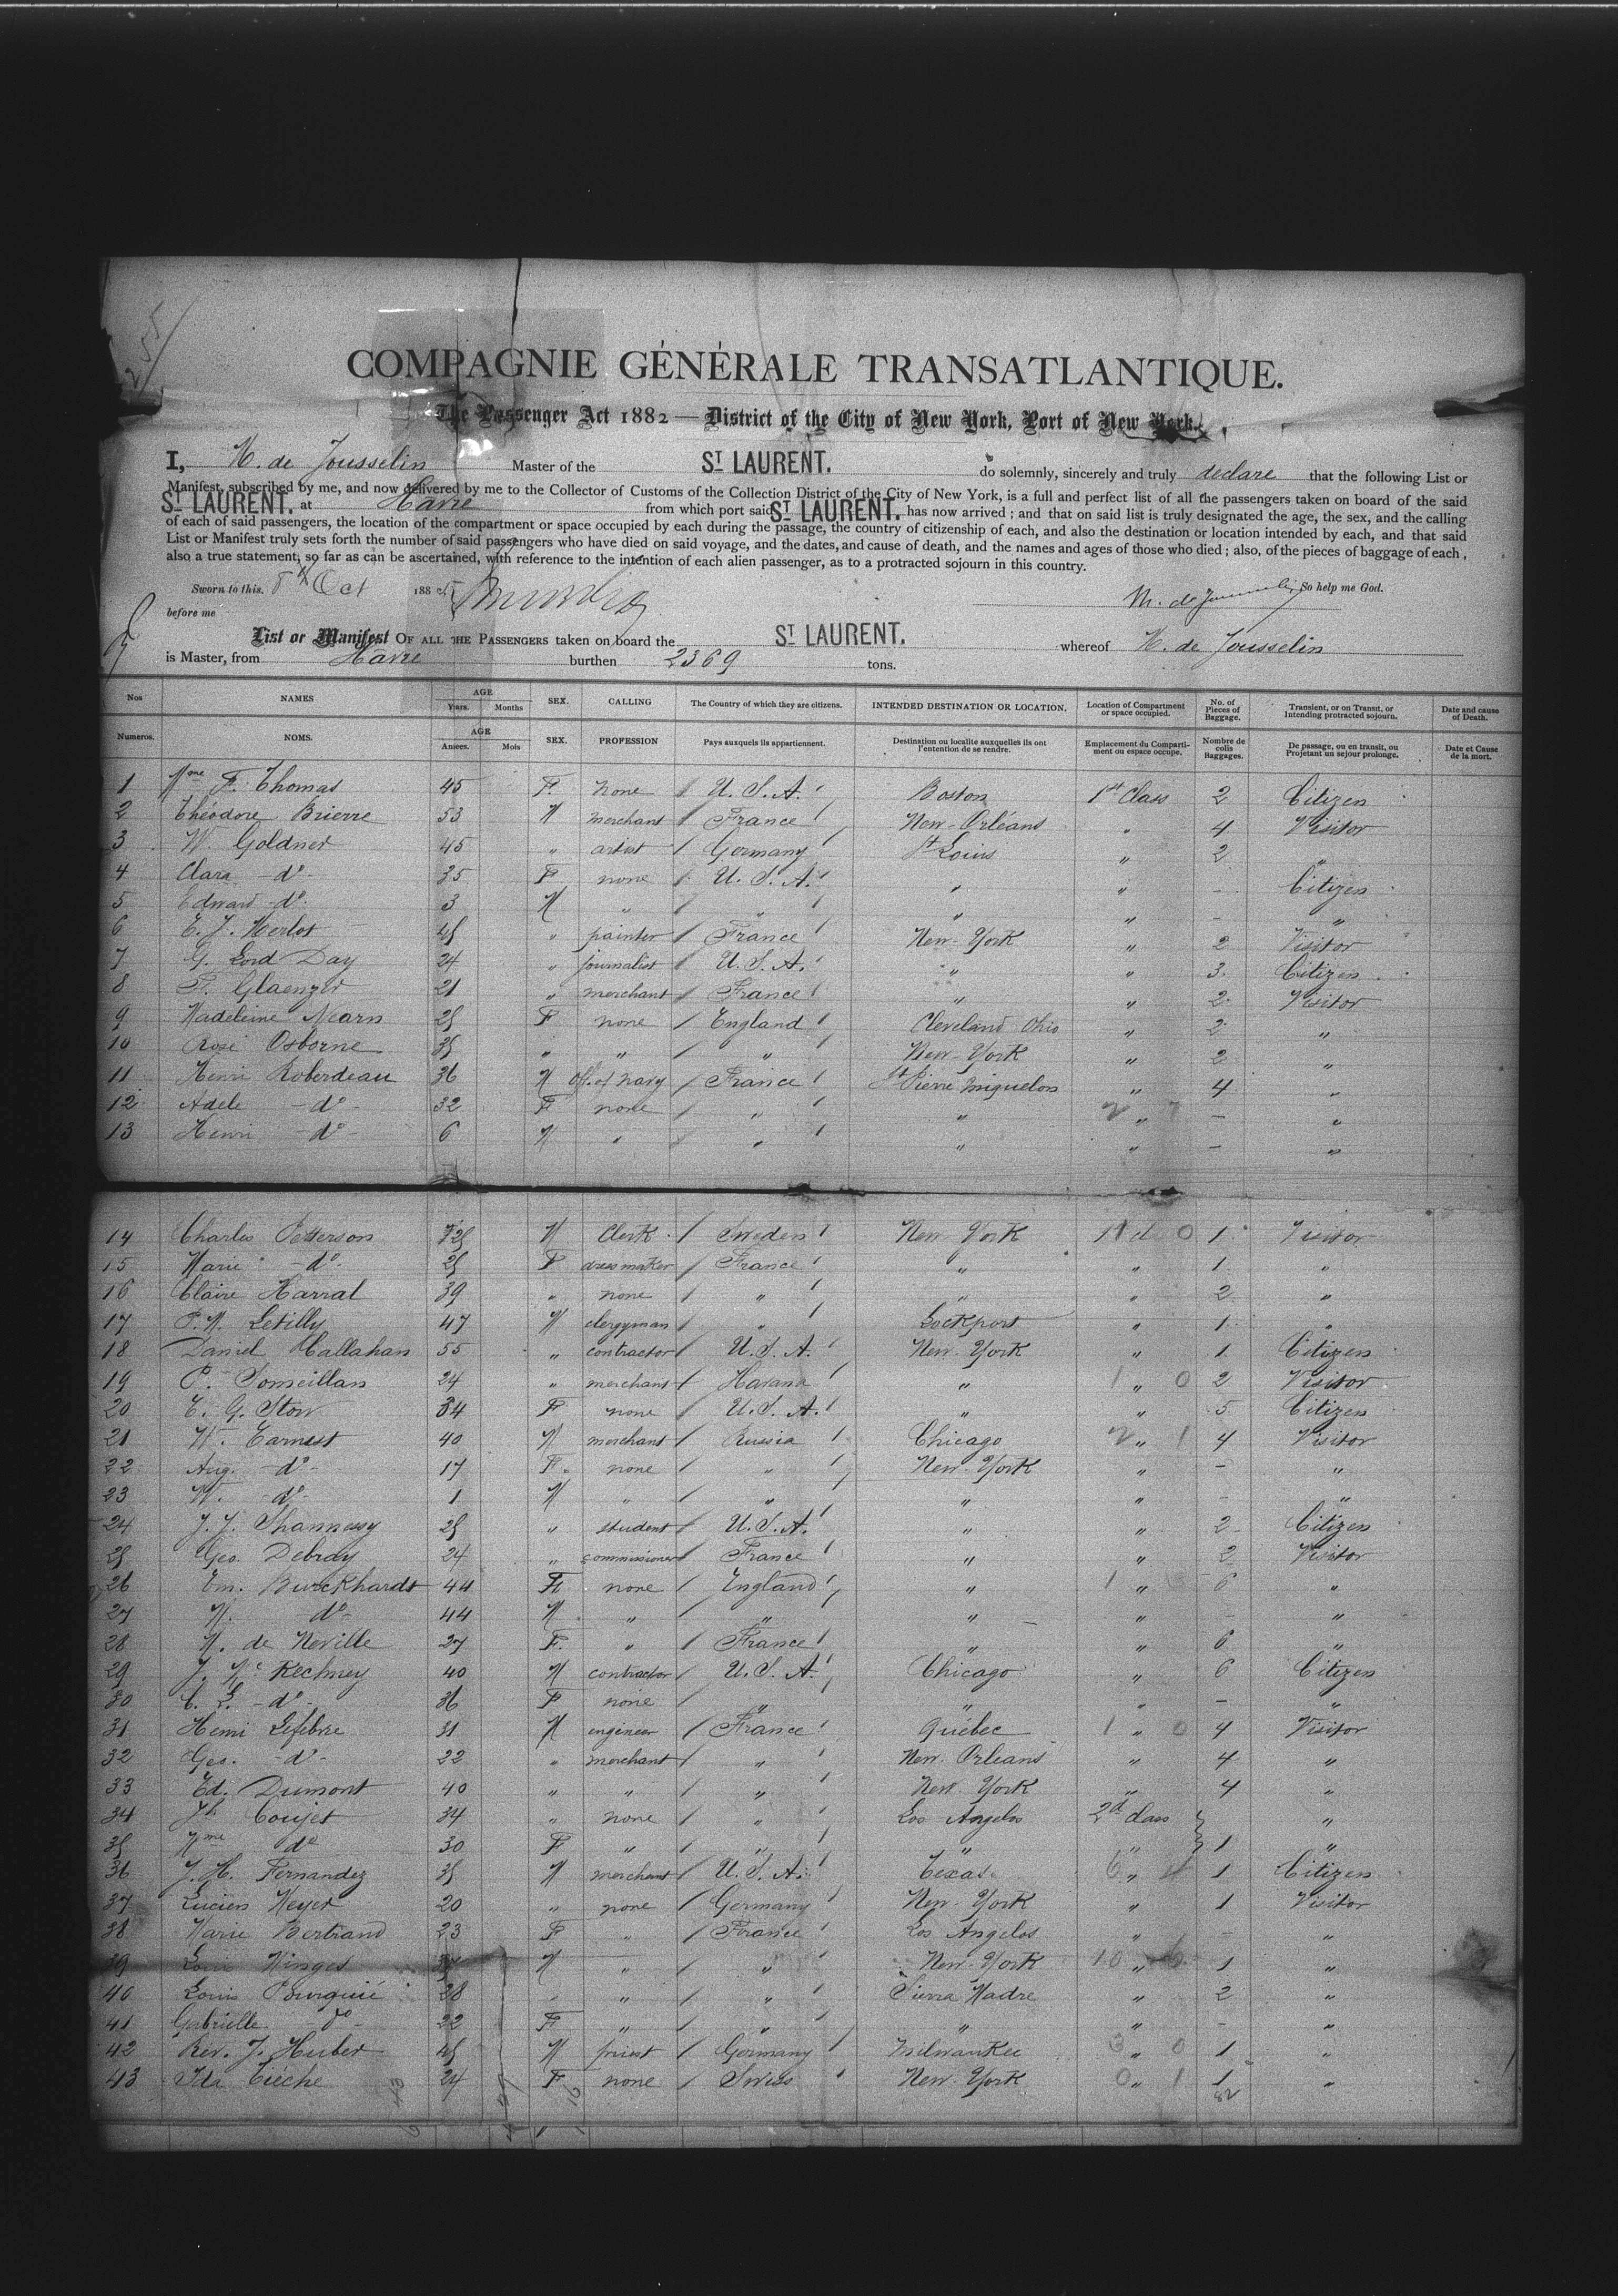 255
COMPAGNIE GÉNÉRALE TRANSATLANTIQUE.
The Passenger Act 1882 — District of the City of New York, Port of New York.
I, M. de Jousselin Master of the ST LAURENT. do solemnly, sincerely and truly declare that the following List or
Manifest, subscribed by me, and now delivered by me to the Collector of Customs of the Collection District of the City of New York, is a full and perfect list of all the passengers taken on board of the said
ST LAURENT. at Havre from which port said ST LAURENT. has now arrived ; and that on said list is truly designated the age, the sex, and the calling
of each of said passengers, the location of the compartment or space occupied by each during the passage, the country of citizenship of each, and also the destination or location intended by each, and that said
List or Manifest truly sets forth the number of said passengers who have died on said voyage, and the dates, and cause of death, and the names and ages of those who died ; also, of the pieces of baggage of each,
also a true statement, so far as can be ascertained, with reference to the intention of each alien passenger, as to a protracted sojourn in this country.
Sworn to this. 8th Oct 188 M. de Jousselin So help me God.
before me
List or Manifest OF ALL THE PASSENGERS taken on board the ST LAURENT. whereof M. de Jousselin
is Master, from Havre burthen 2369 tons.
Nos NAMES AGE Years. Months SEX. CALLING The Country of which they are citizens. INTENDED DESTINATION OR LOCATION. Location of Compartment or space occupied. No. of Pieces of Baggage. Transient, or on Transit, or Intending protracted sojourn. Date and cause of Death.
Numeros. NOMS. AGE Annees. Mois SEX. PROFESSION Pays auxquels ils appartiennent. Destination ou localite auxquelles ils ont l'entention de se rendre. Emplacement du Comparti-ment ou espace occupe. Nombre de colis Baggages. De passage, ou en transit, ou Projetant un sejour prolonge. Date et Cause de la mort.
1 Mme F. Thomas 45 F. none / U. S. A. / Boston 1st Class 2 Citizen
2 Théodore Brierre 53 M merchant / France / New-Orléans " 4 Visitor
3 W. Goldner 45 " artist / Germany / St Louis " 2 "
4 Clara -do- 35 F none / U. S. A. / " " - Citizen
5 Edward -do- 3 M " / " / " " - "
6 E. J. Merlot 45 " painter / France / New-York " 2 Visitor
7 G. Lord Day 24 " journalist / U. S. A. / " " 3 Citizen
8 F. Glaenzer 21 " merchant / France / " " 2 Visitor
9 Madeleine Nearn 25 F none / England / Cleveland Ohio " 2 "
10 Rose Osborne 35 " " / " / New-York " 2 "
11 Henri Roberdeau 36 M off. of navy / France / St Pierre Miquelon " 4 "
12 Adele -do- 32 F none / " / " " - "
13 Henri -do- 6 M " / " / " " - "
14 Charles Petterson 25 M Clerk / Sweden / New York 1 Visitor
15 Marie -do- 25 F dressmaker / France / " " 1 "
16 Claire Harral 39 " none / " / " " 2 "
17 P. M. Letilly 47 M clergyman / " / Lockport " 1 "
18 Daniel Callahan 55 " contractor / U. S. A. / New York " 1 Citizen
19 P. Someillan 24 " merchant / Havana / " " 2 Visitor
20 E. G. Stow 34 F none / U. S. A. / " " 5 Citizen
21 W. Earnest 40 M merchant / Russia / Chicago " 4 Visitor
22 Aug. -do- 17 F. none / " / New-York " - "
23 W. -do- 1 M " / " / " " - "
24 J. J. Shannessy 25 " student / U. S. A. / " " 2 Citizen
25 Geo. Debray 24 " commissioner / France / " " 2 Visitor
26 Em. Burckhardt 44 F. none / England / " " 6 "
27 M. -do- 44 M " / " / " " - "
28 M. de Neville 27 F. " / France / " " 6 "
29 J. Mc Kechney 40 M contractor / U. S. A. / Chicago " 6 Citizen
30 C. L. -do- 36 F none / " / " " - "
31 Henri Lefebvre 31 M engineer / France / Québec " 4 Visitor
32 Geo. -do- 22 " merchant / " / New Orleans " 4 "
33 Ed. Dumont 40 " " / " / New York " 4 "
34 Jh Coujet 34 " none / " / Los Angelos 2d class "
35 Mme do 30 F " / " / " " 1 "
36 J. H. Fernandez 35 M merchant / U. S. A. / Texas " 1 Citizen
37 Lucien Meyer 20 " none / Germany / New-York " 1 Visitor
38 Marie Bertrand 23 F " / France / Los Angelos " - "
39 Louis Winges M " / " / New-York " 1 "
40 Louis Pourquié 28 " " / " / Sierra Madre " 2 "
41 Gabrielle do 22 F " / " / " " - "
42 Rev. J. Huber 45 M priest / Germany / Milwaukee " 1 "
43 Ida Tièche 24 F none / Swiss / New-York " 1 "
82